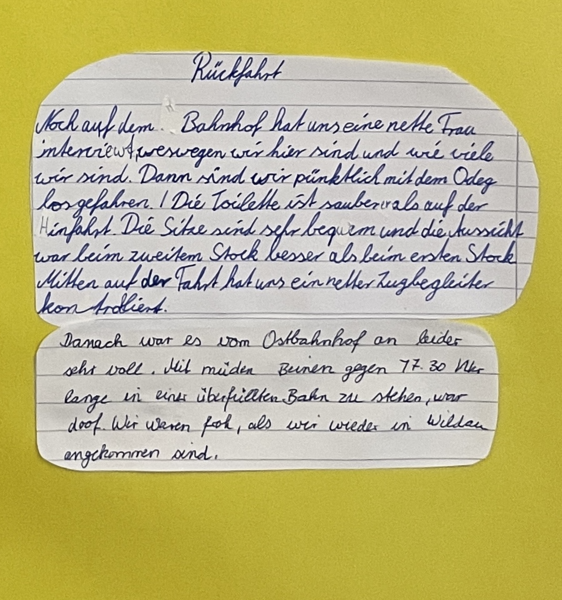 Rückfahrt
Noch auf dem Bahnhof hat uns eine nette Frau
interviewt, weswegen wir hier sind und wie viele
wir sind. Dann sind wir pünktlich mit dem Odeg
losgefahren. Die Toilette ist sauberer als auf der
Hinfahrt. Die Sitze sind sehr bequem und die Aussicht
war beim zweitem Stock besser als beim ersten Stock
Mitten auf der Fahrt hat uns ein netter Zugbegleiter
kontrolliert.
Danach war es vom Ostbahnhof an leider
sehr voll. Mit müden Beinen gegen 17.30 Uhr
lange in einer überfüllten Bahn zu stehen, war
doof. Wir waren froh, als wir wieder in Wildau
angekommen sind.